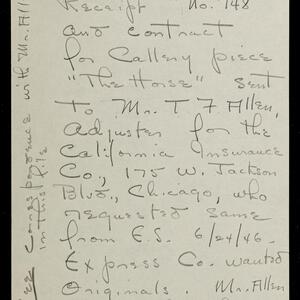 Receipt No. 148
and contract
for Callery piece
"The Horse" sent
to Mr. T. F. Allen,
Adjuster for the
California Insurance
Co., 175 W. Jackson
Blvd., Chicago, who
requested same
from E.S. 6/24/46.
Express Co. wanted
Originals. Mr. Allen
Correspondence with Mr. All
in this file